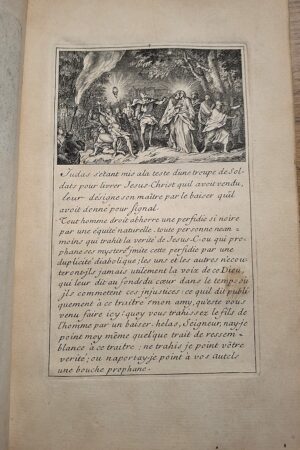 Judas s'etant mis a la teste d'une troupe de Sol-
dats pour livrer Jesus-Christ quil avoit vendu,
leur désigne son maître par le baiser quil
avoit donné pour signal.
Tout homme droit abhorre une perfidie si noire
par une équité naturelle: toute personne nean-
moins qui trahit la verité de Jesus-C. ou qui pro-
phane ses mysteres imite cette perfidie par une
duplicité diabolique; les uns et les autres n'ecou-
teront ils jamais utilement la voix de ce Dieu,
qui leur dit au fonds du cœur dans le temps où
ils commettent ces injustices ce quil dit publi-
quement à ce traître: mon amy, qu'este vous
venu faire icy: quoy vous trahissez le fils de
l'homme par un baiser. helas, Seigneur, nay-je
point moy même quelque trait de ressem-
blance à ce traitre: ne trahis-je point vôtre
verité; ou naportay-je point à vos autels
une bouche prophane.